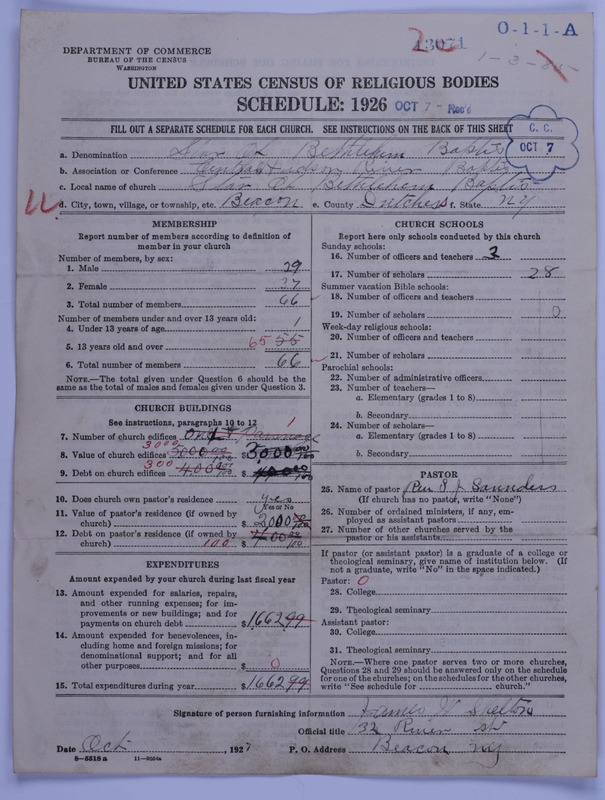 13071
O-1-1-A
1-3-85
DEPARTMENT OF COMMERCE
BUREAU OF THE CENSUS
WASHINGTON
UNITED STATES CENSUS OF RELIGIOUS BODIES
SCHEDULE: 1926 OCT 7 - Rec'd
FILL OUT A SEPARATE SCHEDULE FOR EACH CHURCH. SEE INSTRUCTIONS ON THE BACK OF THIS SHEET
C. C.
OCT 7
a. Denomination Star Of Bethlehem Baptist
b. Association or Conference Central Hudson River Baptist
c. Local name of church Star Of Bethlehem Baptist
d. City, town, village, or township, etc. Beacon e. County Dutchess f. State NY
MEMBERSHIP
Report number of members according to definition of
member in your church
Number of members, by sex:
1. Male 29
2. Female 37
3. Total number of members 66
Number of members under and over 13 years old:
4. Under 13 years of age 1
5. 13 years old and over 65 55
6. Total number of members 66
NOTE.—The total given under Question 6 should be the
same as the total of males and females given under Question 3.
CHURCH BUILDINGS
See instructions, paragraphs 10 to 12
7. Number of church edifices One 1
8. Value of church edifices 3000 5000 $ 3000
9. Debt on church edifices 300 400 $
10. Does church own pastor's residence yes
(Yes or No)
11. Value of pastor's residence (if owned by
church) $ 2000
12. Debt on pastor's residence (if owned by
church) 100 $
EXPENDITURES
Amount expended by your church during last fiscal year
13. Amount expended for salaries, repairs,
and other running expenses; for im-
provements or new buildings; and for
payments on church debt $ 1,662 99
14. Amount expended for benevolences, in-
cluding home and foreign missions; for
denominational support; and for all
other purposes $ 0
15. Total expenditures during year $ 1,662 99
CHURCH SCHOOLS
Report here only schools conducted by this church
Sunday schools:
16. Number of officers and teachers 3
17. Number of scholars 28
Summer vacation Bible schools:
18. Number of officers and teachers
19. Number of scholars 0
Week-day religious schools:
20. Number of officers and teachers
21. Number of scholars
Parochial schools:
22. Number of administrative officers
23. Number of teachers—
a. Elementary (grades 1 to 8)
b. Secondary
24. Number of scholars—
a. Elementary (grades 1 to 8)
b. Secondary
PASTOR
25. Name of pastor Rev S. J. Saunders
(If church has no pastor, write "None")
26. Number of ordained ministers, if any, em-
ployed as assistant pastors
27. Number of other churches served by the
pastor or his assistants
If pastor (or assistant pastor) is a graduate of a college or
theological seminary, give name of institution below. (If
not a graduate, write "No" in the space indicated.)
Pastor: 0
28. College
29. Theological seminary
Assistant pastor:
30. College
31. Theological seminary
NOTE.—Where one pastor serves two or more churches,
Questions 28 and 29 should be answered only on the schedule
for one of the churches; on the schedules for the other churches,
write "See schedule for church."
Signature of person furnishing information James W Shelton
Official title 132 River St
Date Oct , 1927 P. O. Address Beacon NY
8—5518 a